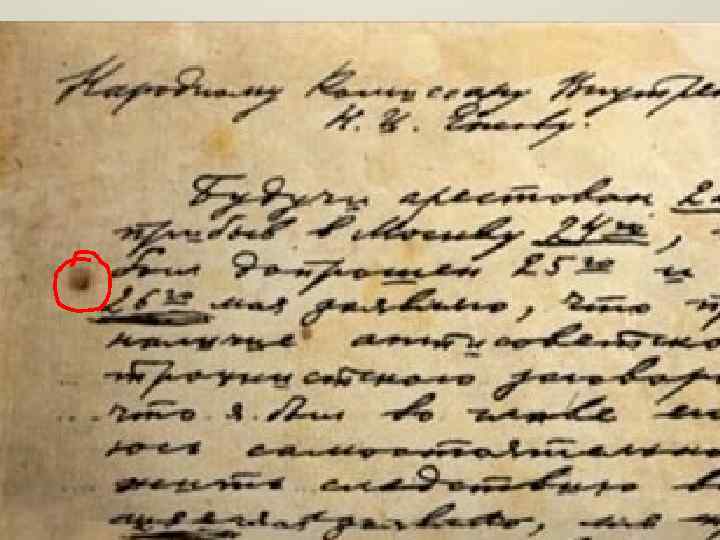 Народному Комиссару Внутрен
Н. И. Ежову.
Будучи арестован 2
прибыв в Москву 24го,
был допрошен 25го и
26го мая заявляю, что
наличие антисоветско
троцкистского заговор
что я был во главе
юсь самостоятельно
жить следствию